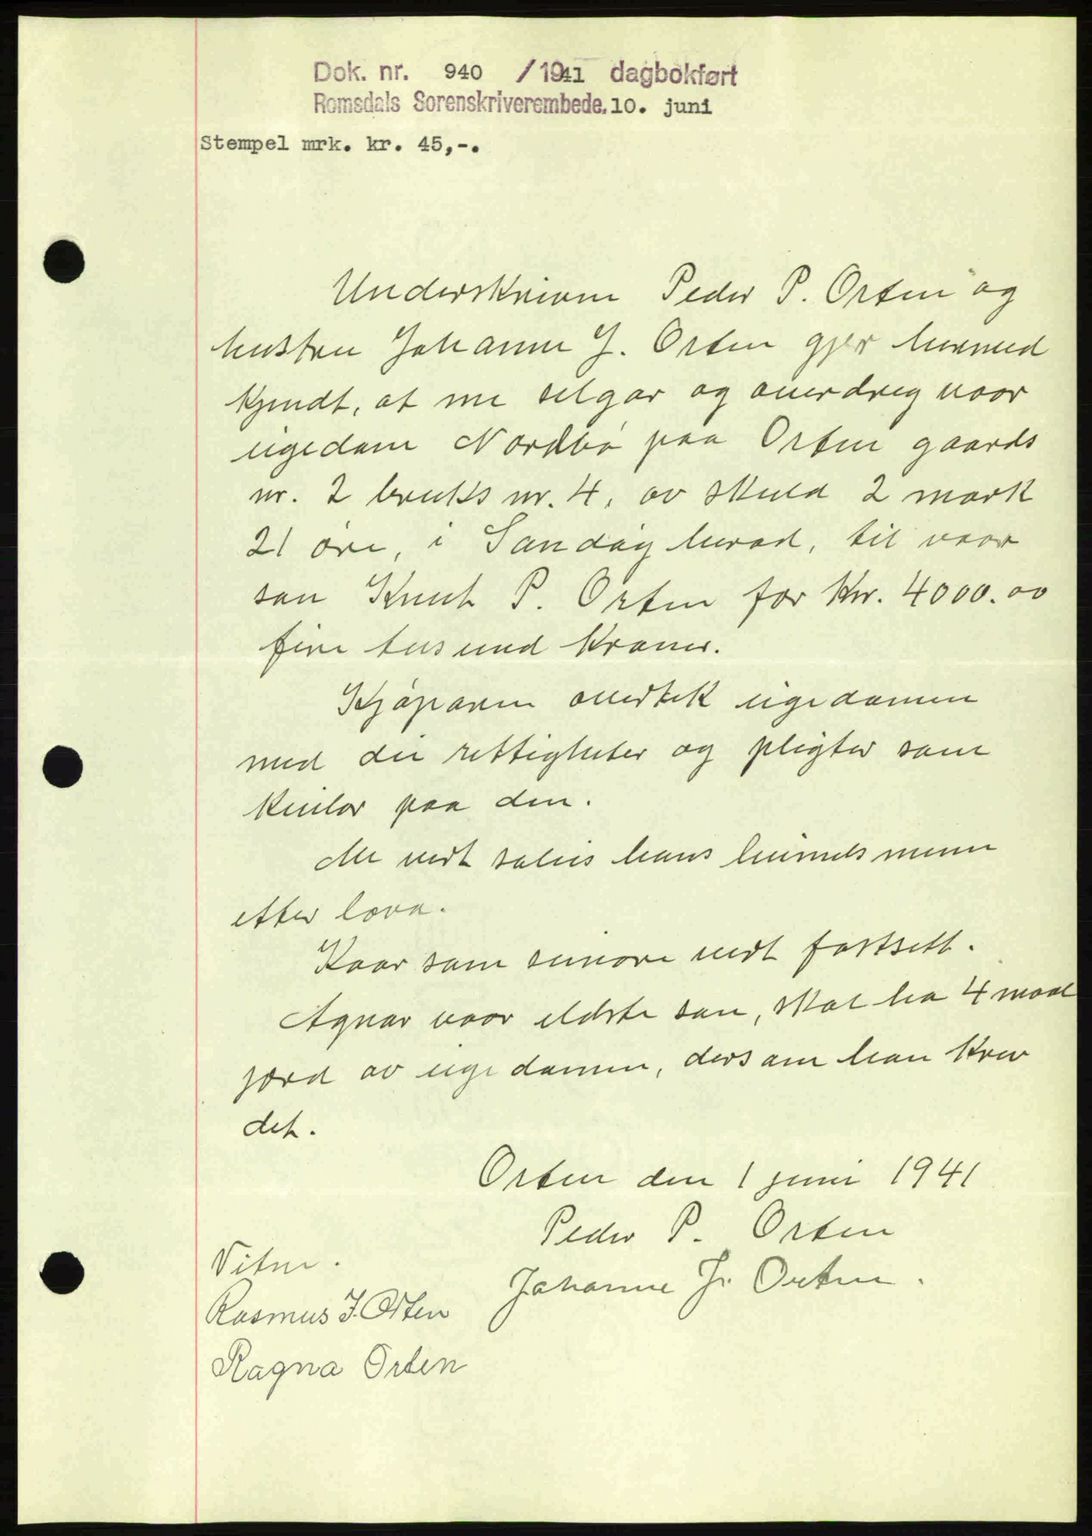 Dok. nr. 940 /1941 dagbokført
Romsdals Sorenskriverembede. 10. juni
Stempel mrk. kr. 45,-.
Underskrivne Peder P. Orten og
hustru Johanne J. Orten gjer hermed
kjendt, at me selgar og overdreg voor
eigedom Nordbø paa Orten gaards
nr. 2 bruks nr. 4, av skuld 2 mark
21 øre, i Sandøy herad, til voor
son Knut P. Orten for Kr. 4000.00
fire tusund kroner.
Kjøparen overtek eigedomen
med dei rettigheter og pligter som
kviler paa den.
Me vert soleis hans heimelsmenn
etter lova.
Kaar som seinare vert fastsett.
Agnar voor eldste son, skal ha 4 maal
jord av eigedomen, dersom han krev
det.
Orten den 1 juni 1941
Peder P. Orten
Johanne J. Orten.
Vitne.
Rasmus J. Orten
Ragna Orten